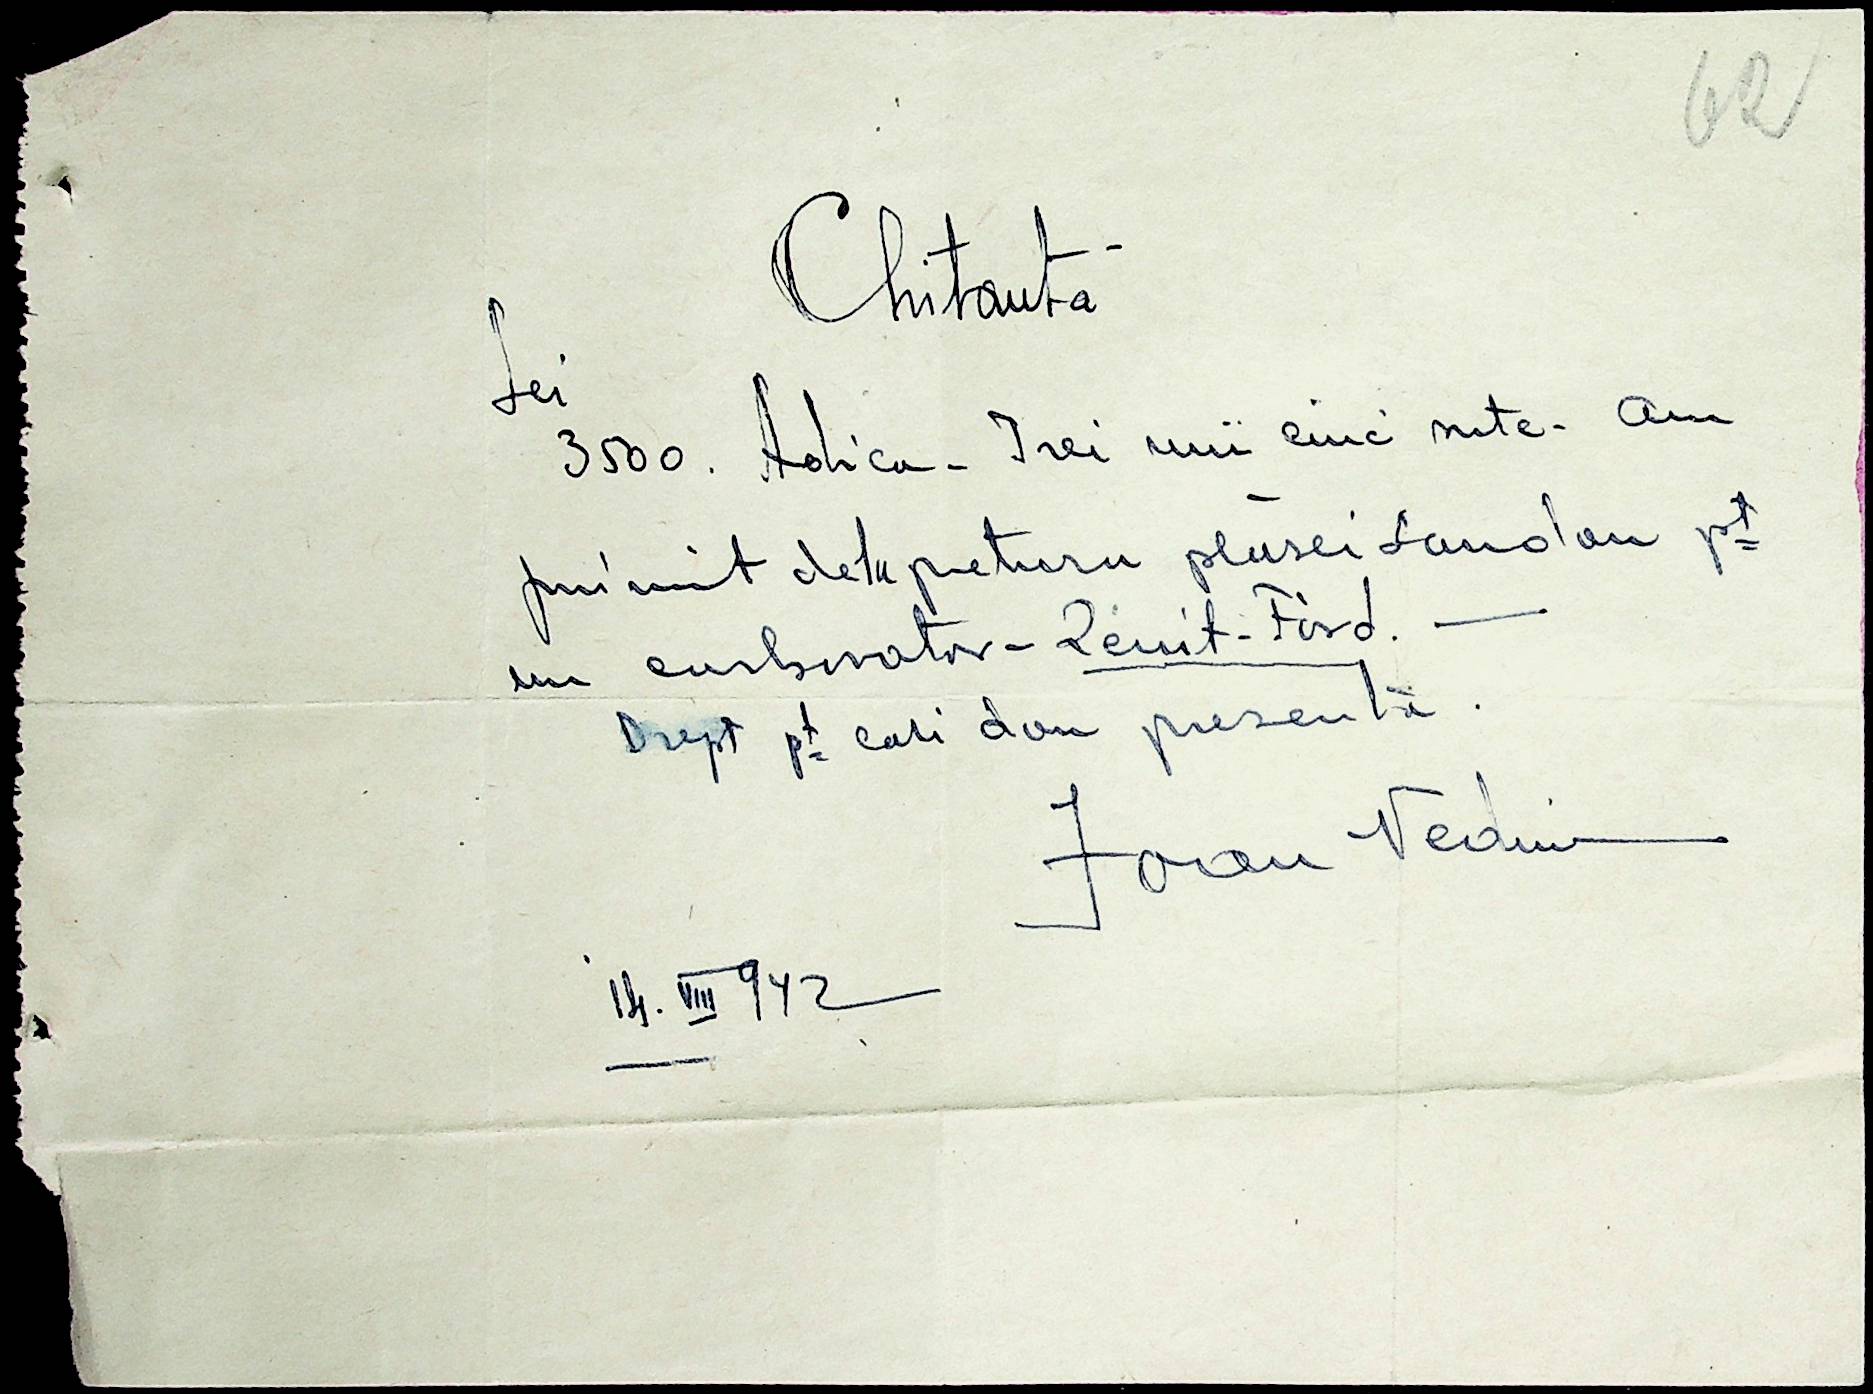 62
Chitantă
Lei
3500. Adica - Trei mii cinci sute - Am
primit dela pretura plăsei Landau pt
un carburator - Zenit - Ford. —
Drept pt care dau prezentă.
Ioan Nedu
14. VIII 942